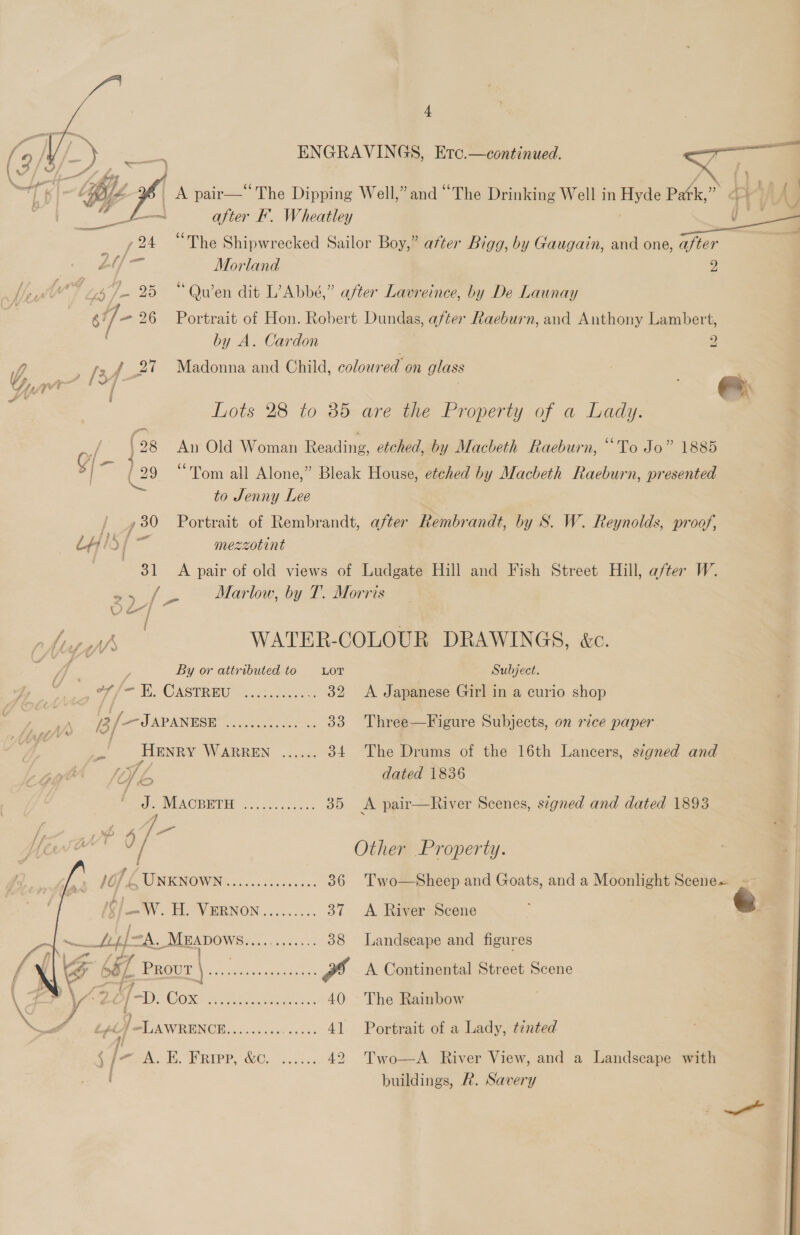 4
ENGRAVINGS, ETC.—continued.
A pair—“The Dipping Well,” and “The Drinking Well in Hyde Park,”
after F. Wheatley
24 “The Shipwrecked Sailor Boy,” after Bigg, by Gaugain, and one, after
Morland 2
25 “Qu’en dit L’Abbé,” after Lavreince, by De Launay
26 Portrait of Hon. Robert Dundas, after Raeburn, and Anthony Lambert,
by A. Cardon 2
27 Madonna and Child, coloured on glass
Lots 28 to 35 are the Property of a Lady.
28 An Old Woman Reading, etched, by Macbeth Raeburn, “To Jo” 1885
29 “Tom all Alone,” Bleak House, etched by Macbeth Raeburn, presented
to Jenny Lee
30 Portrait of Rembrandt, after Rembrandt, by S. W. Reynolds, proof,
mezzotint
31 A pair of old views of Ludgate Hill and Fish Street Hill, after W.
Marlow, by T. Morris
WATER-COLOUR DRAWINGS, &c.
By or attributed to LOT Subject.
E. CASTREU ............ 32 A Japanese Girl in a curio shop
JAPANESE ............ 33 Three—Figure Subjects, on rice paper
HENRY WARREN ...... 34 The Drums of the 16th Lancers, signed and
dated 1836
J. MACBETH ............ 35 A pair—River Scenes, signed and dated 1893
Other Property.
UNKNOWN ............... 36 Two—Sheep and Goats, and a Moonlight Scene
W. H. VERNON ......... 37 A River Scene
A. MEADOWS ............ 38 Landscape and figures
PROUT .................. A Continental Street Scene
D. COX .................. 40 The Rainbow
LAWRENCE ............... 41 Portrait of a Lady, tinted
A. E. FRIPP, &C. ...... 42 Two—A River View, and a Landscape with
buildings, R. Savery